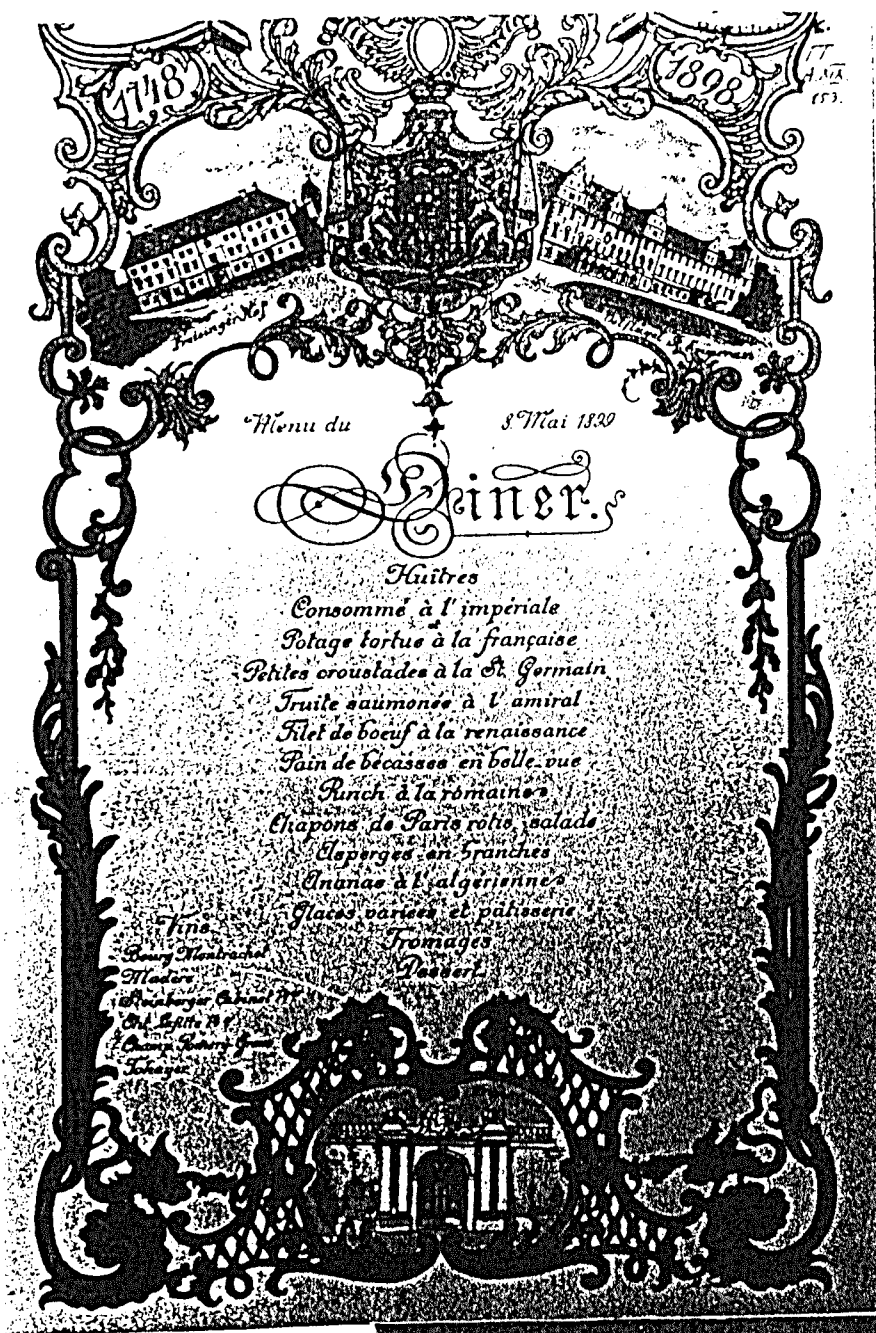 1748
1898
TT
153.
Freisinger Hof
Menu du 8. Mai 1899
Diner.
Huîtres
Consommé à l'impériale
et
Potage tortue à la française
Petites croustades à la St. Germain
Truite saumonée à l'amiral
Filet de boeuf à la renaissance
Pain de bécasses en belle-vue
Punch à la romaine
Chapons de Paris rotis, salade
Asperges en branches
Ananas à l'algerienne
Glaces variées et patisserie
Fromages
Dessert
Vins
Bourg Montrachet
Madère
Steinberger Cabinet
Cht. Lafitte
Champ.
Tokayer